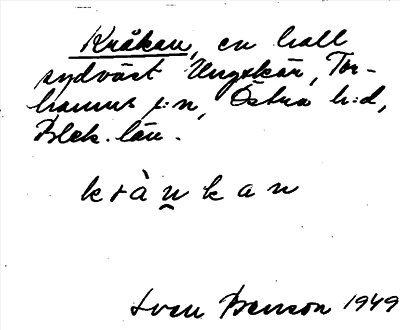 Kråkan, en hall
sydväst Ungskär, Tor-
hamns s:n, Östra h:d,
Blek. län.
kràn̯kan
Sven Benson 1949